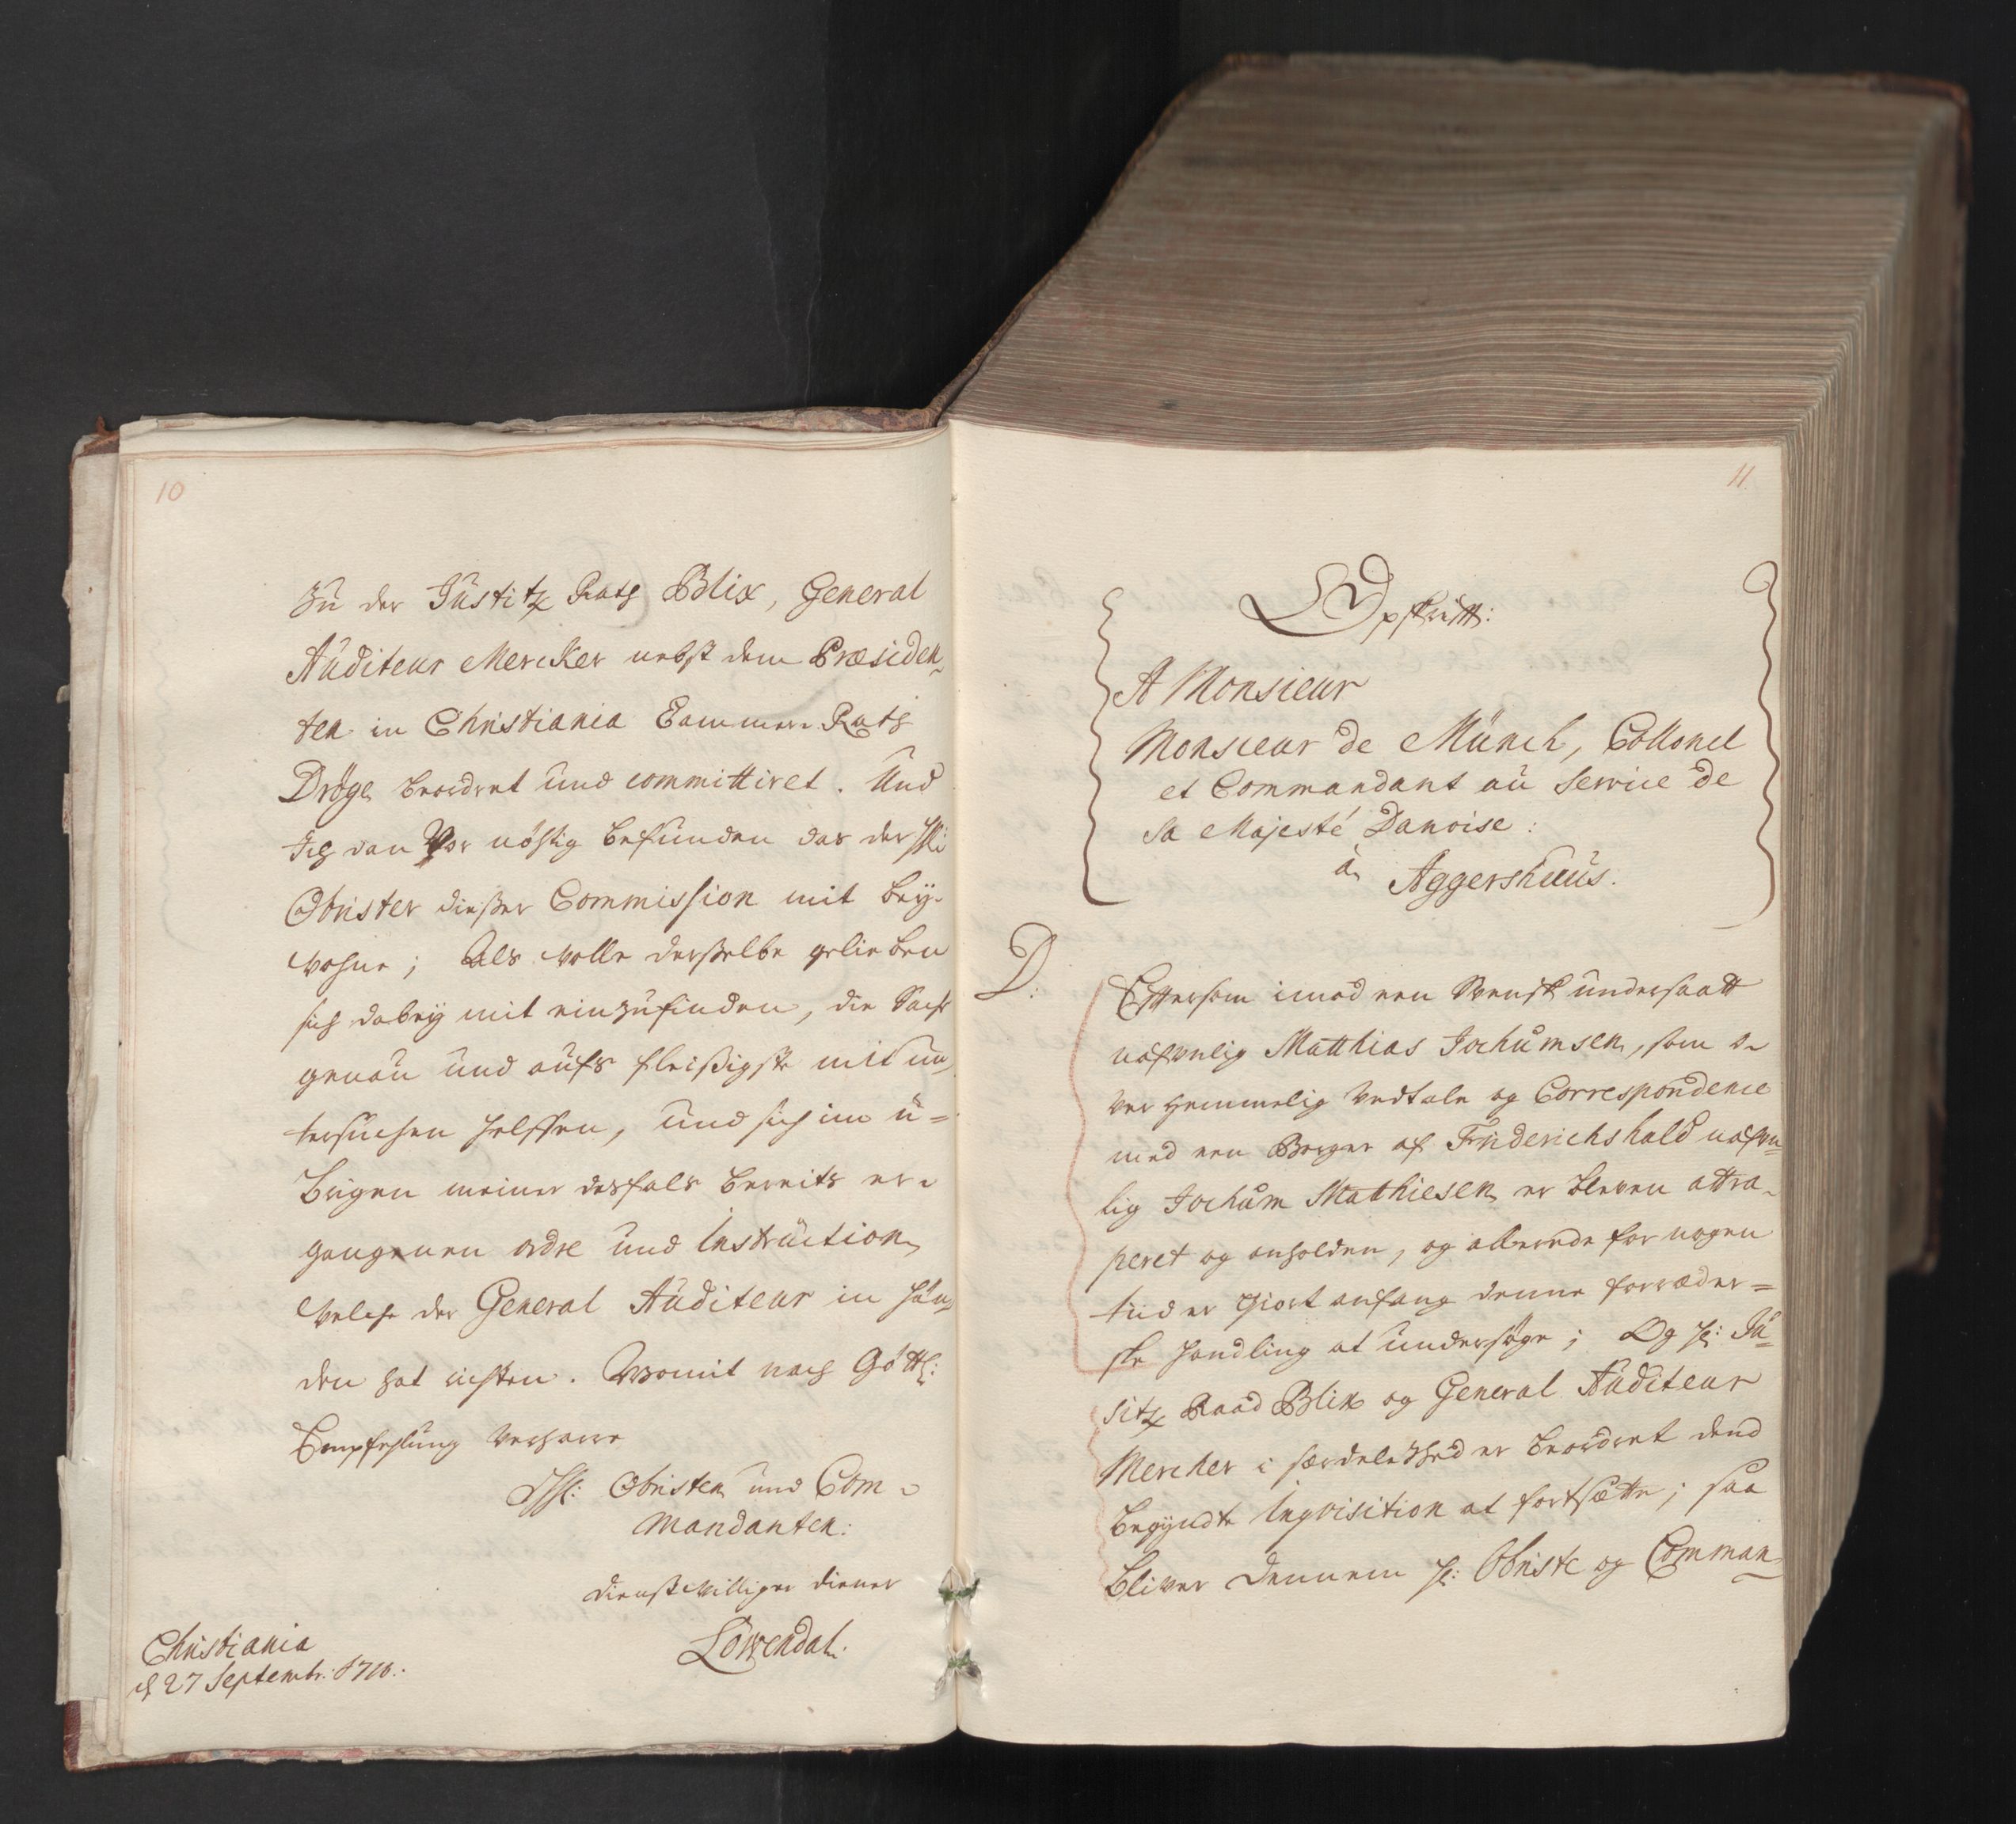 10
Zu der Justitz Rath Blix, General
Auditeur Mercker nebst dem Præsiden-
ten in Christiania Cammer Rath
Dröge beordret und committiret. Und
Ich dan Vor nöhtig befunden das der HH:
Obrister dießer Commission mit bey-
wohne; Als wolle derselbe gelieben
sich dabey mit einzufinden, die Sache
genau und aufs fleißigste mit un-
tersuchen helffen, und sich im ü=
brigen meiner desfals bereits er-
gangenen ordre und Instruction
welche der General Auditeur in hän-
den hat richten. Womit nach Göttl:
Empfehlung verharre
HH: Obristen und Com-
mandanten:
dienstwilliger diener
Löwendal.
Christiania
d 27 Septembr: 1710.
11
Opskrifft:
A Monsieur
Monsieur de Münch, Collonel
et Commandant au service de
sa Majesté Danoise:
à Aggershuus.
D:
Eftersom imod een Svensk undersaatt
nafnlig Matthias Jochumsen, som o-
ver hemmelig Vedtale og Correspondence
med een Borger af Friderichshald nafn-
lig Jochum Mathiesen er bleven attra-
peret og anholden, og allerede for nogen
tiid er giort anfang denne forræder=
ske handling at undersøge; Og Hr: Ju-
sitz Raad Blix og General Auditeur
Mercher i særdeleshed er beordret dend
begyndte Inqvisition at fortsætte; saa
bliver dennem Hr: Obriste og Comman-